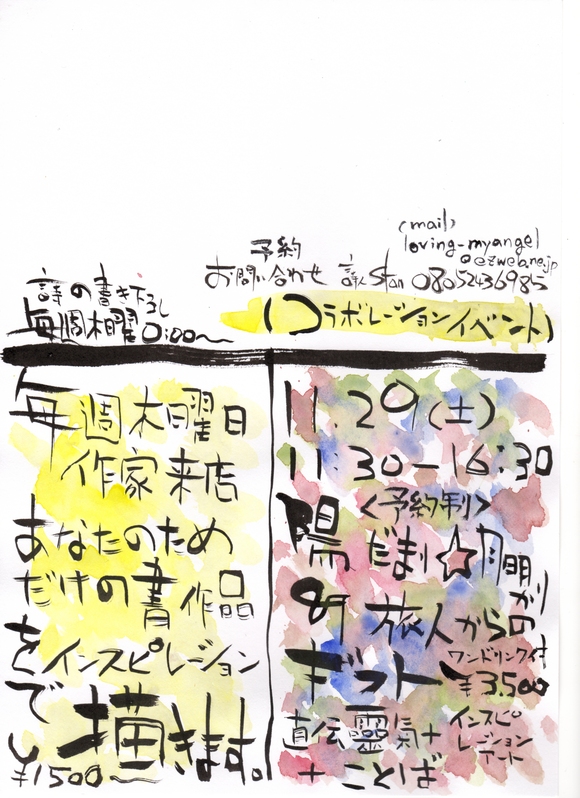 (mail)
loving-myangel
@ezweb.ne.jp
予約
お問い合わせ 詩人stan 08052436985
詩の書き下ろし
毎週木曜 0:00〜
(コラボレーションイベント)
毎週木曜日
作家来店
あなたのため
だけの書作品
をインスピレーション
で描きます。
¥1500〜
11.29(土)
11.30-16:30
<予約制>
陽だまり☆
旅人からの
ギフト
ワンドリンク付
¥3,500
直伝靈氣+
インスピ
レーション
アート
+ことば